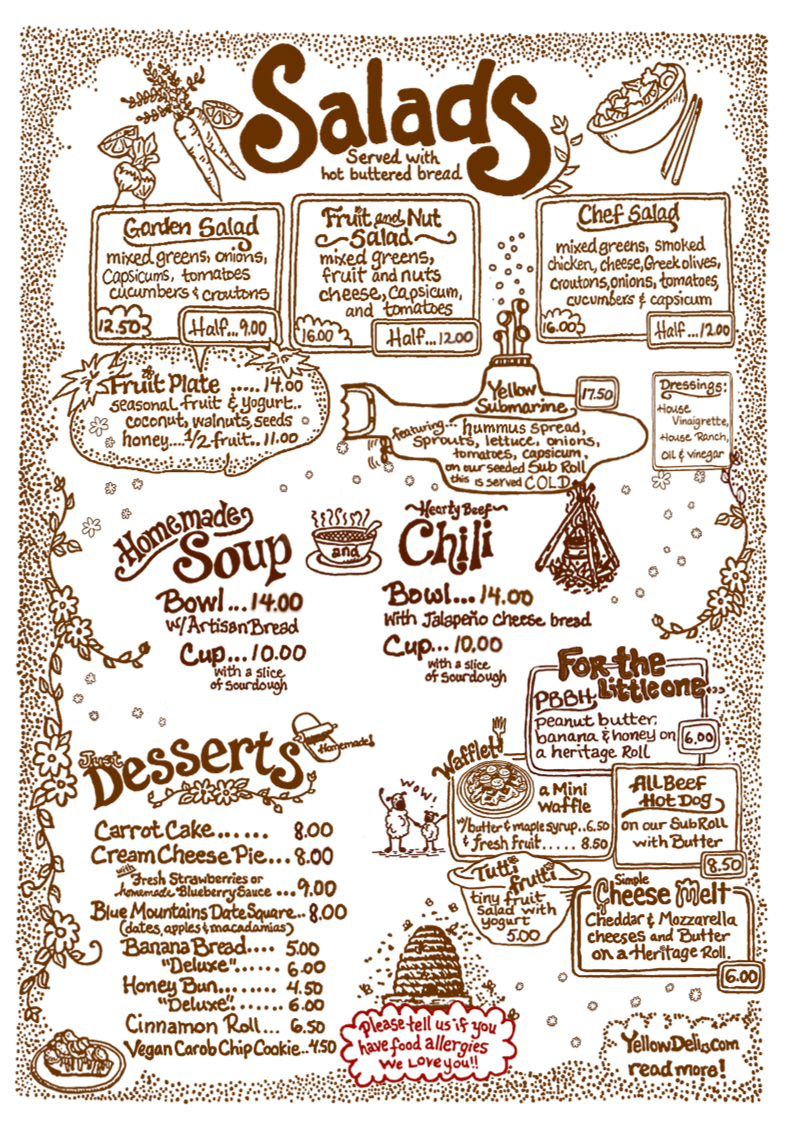 Salads
Served with
hot buttered bread
Garden Salad
mixed greens, onions,
Capsicums, tomatoes
cucumbers & croutons
12.50
Half...9.00
Fruit and Nut
Salad
mixed greens,
fruit and nuts
cheese, Capsicum,
and tomatoes
16.00
Half...12.00
Chef Salad
mixed greens, smoked
chicken, cheese, Greek olives,
croutons, onions, tomatoes,
cucumbers & capsicum
16.00
Half...12.00
Fruit Plate .....14.00
seasonal fruit & yogurt..
coconut, walnuts, seeds
honey....1/2 fruit..11.00
Yellow
Submarine
17.50
featuring... hummus spread,
sprouts, lettuce, onions,
tomatoes, capsicum,
on our seeded Sub Roll
this is served COLD
Dressings:
House
Vinaigrette,
House Ranch,
Oil & vinegar
Homemade
Soup
and
Hearty Beef
Chili
Bowl...14.00
w/Artisan Bread
Cup...10.00
with a slice
of sourdough
Bowl...14.00
With Jalapeño cheese bread
Cup...10.00
with a slice
of sourdough
For the
Little one...
PBBH
peanut butter,
banana & honey on
a heritage Roll
6.00
Wafflet!
a Mini
waffle
w/butter & maple syrup..6.50
& fresh fruit..... 8.50
All Beef
Hot Dog
on our Sub Roll
with Butter
8.50
Tutti
frutti
tiny fruit
Salad with
yogurt
5.00
Simple
Cheese Melt
Cheddar & Mozzarella
cheeses and Butter
on a Heritage Roll.
6.00
WOW!
Just
Desserts
Homemade!
Carrot Cake...... 8.00
Cream Cheese Pie...8.00
with Fresh Strawberries or
homemade Blueberry Sauce ...9.00
Blue Mountains Date Square..8.00
(dates, apples & macadamias)
Banana Bread.... 5.00
"Deluxe"...... 6.00
Honey Bun....... 4.50
"Deluxe"...... 6.00
Cinnamon Roll... 6.50
Vegan Carob Chip Cookie..4.50
Please tell us if you
have food allergies
We Love you!!
YellowDeli.com
read more!